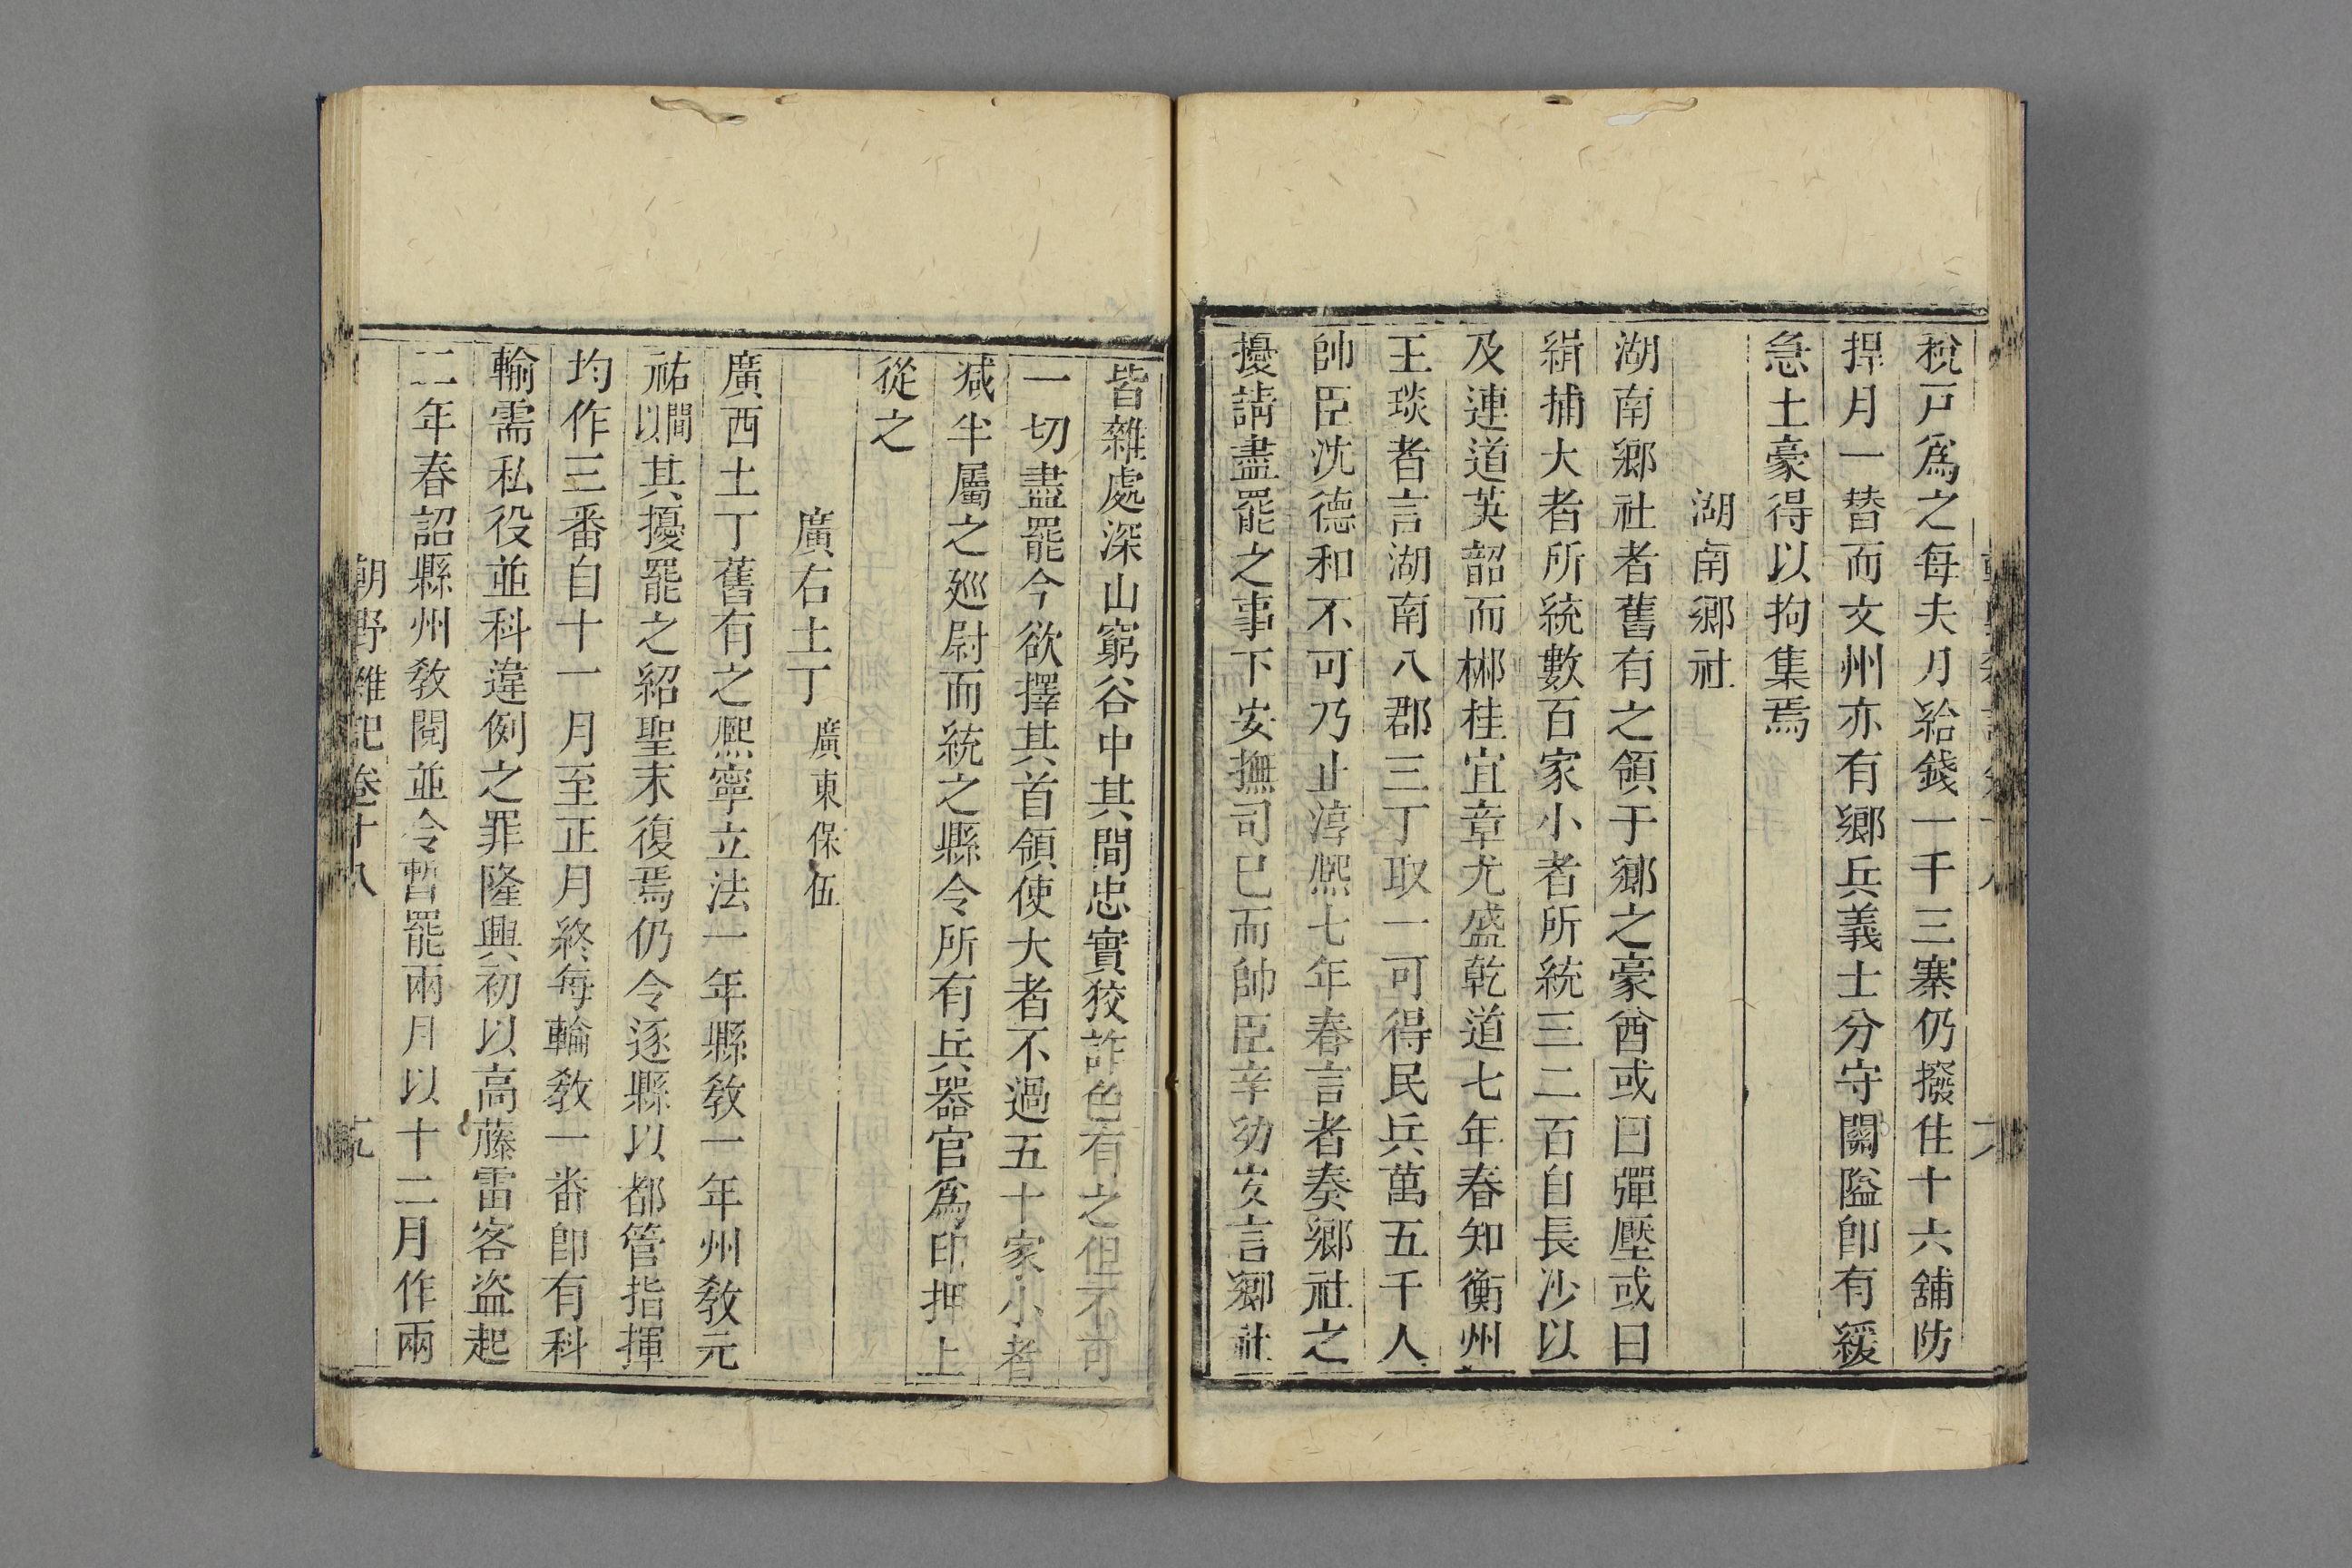 稅戸爲之每夫月給錢一千三寨仍撥住十六舖防
捍月一替而文州亦有鄉兵義士分守關隘卽有緩
急土豪得以拘集焉
湖南鄉社
湖南鄉社者舊有之領于鄉之豪酋或曰彈壓或曰
緝捕大者所統數百家小者所統三二百自長沙以
及連道英韶而郴桂宜章尤盛乾道七年春知衡州
王琰者言湖南八郡三丁取一可得民兵萬五千人
帥臣沈德和不可乃止淳熙七年春言者奏鄉社之
擾請盡罷之事下安撫司已而帥臣辛幼安言鄉社
皆雜處深山窮谷中其間忠實狡詐色有之但不可
一切盡罷今欲擇其首領使大者不過五十家小者
減半屬之廵尉而統之縣令所有兵器官爲印押上
從之
廣右土丁 廣東保伍
廣西土丁舊有之熙寧立法一年縣敎一年州敎元
祐間以其擾罷之紹聖末復焉仍令逐縣以都管指揮
均作三番自十一月至正月終每輪敎一番卽有科
輸需私役並科違例之罪隆興初以高藤雷容盜起
二年春詔縣州敎閱並令暫罷兩月以十二月作兩
朝野雜記卷十八